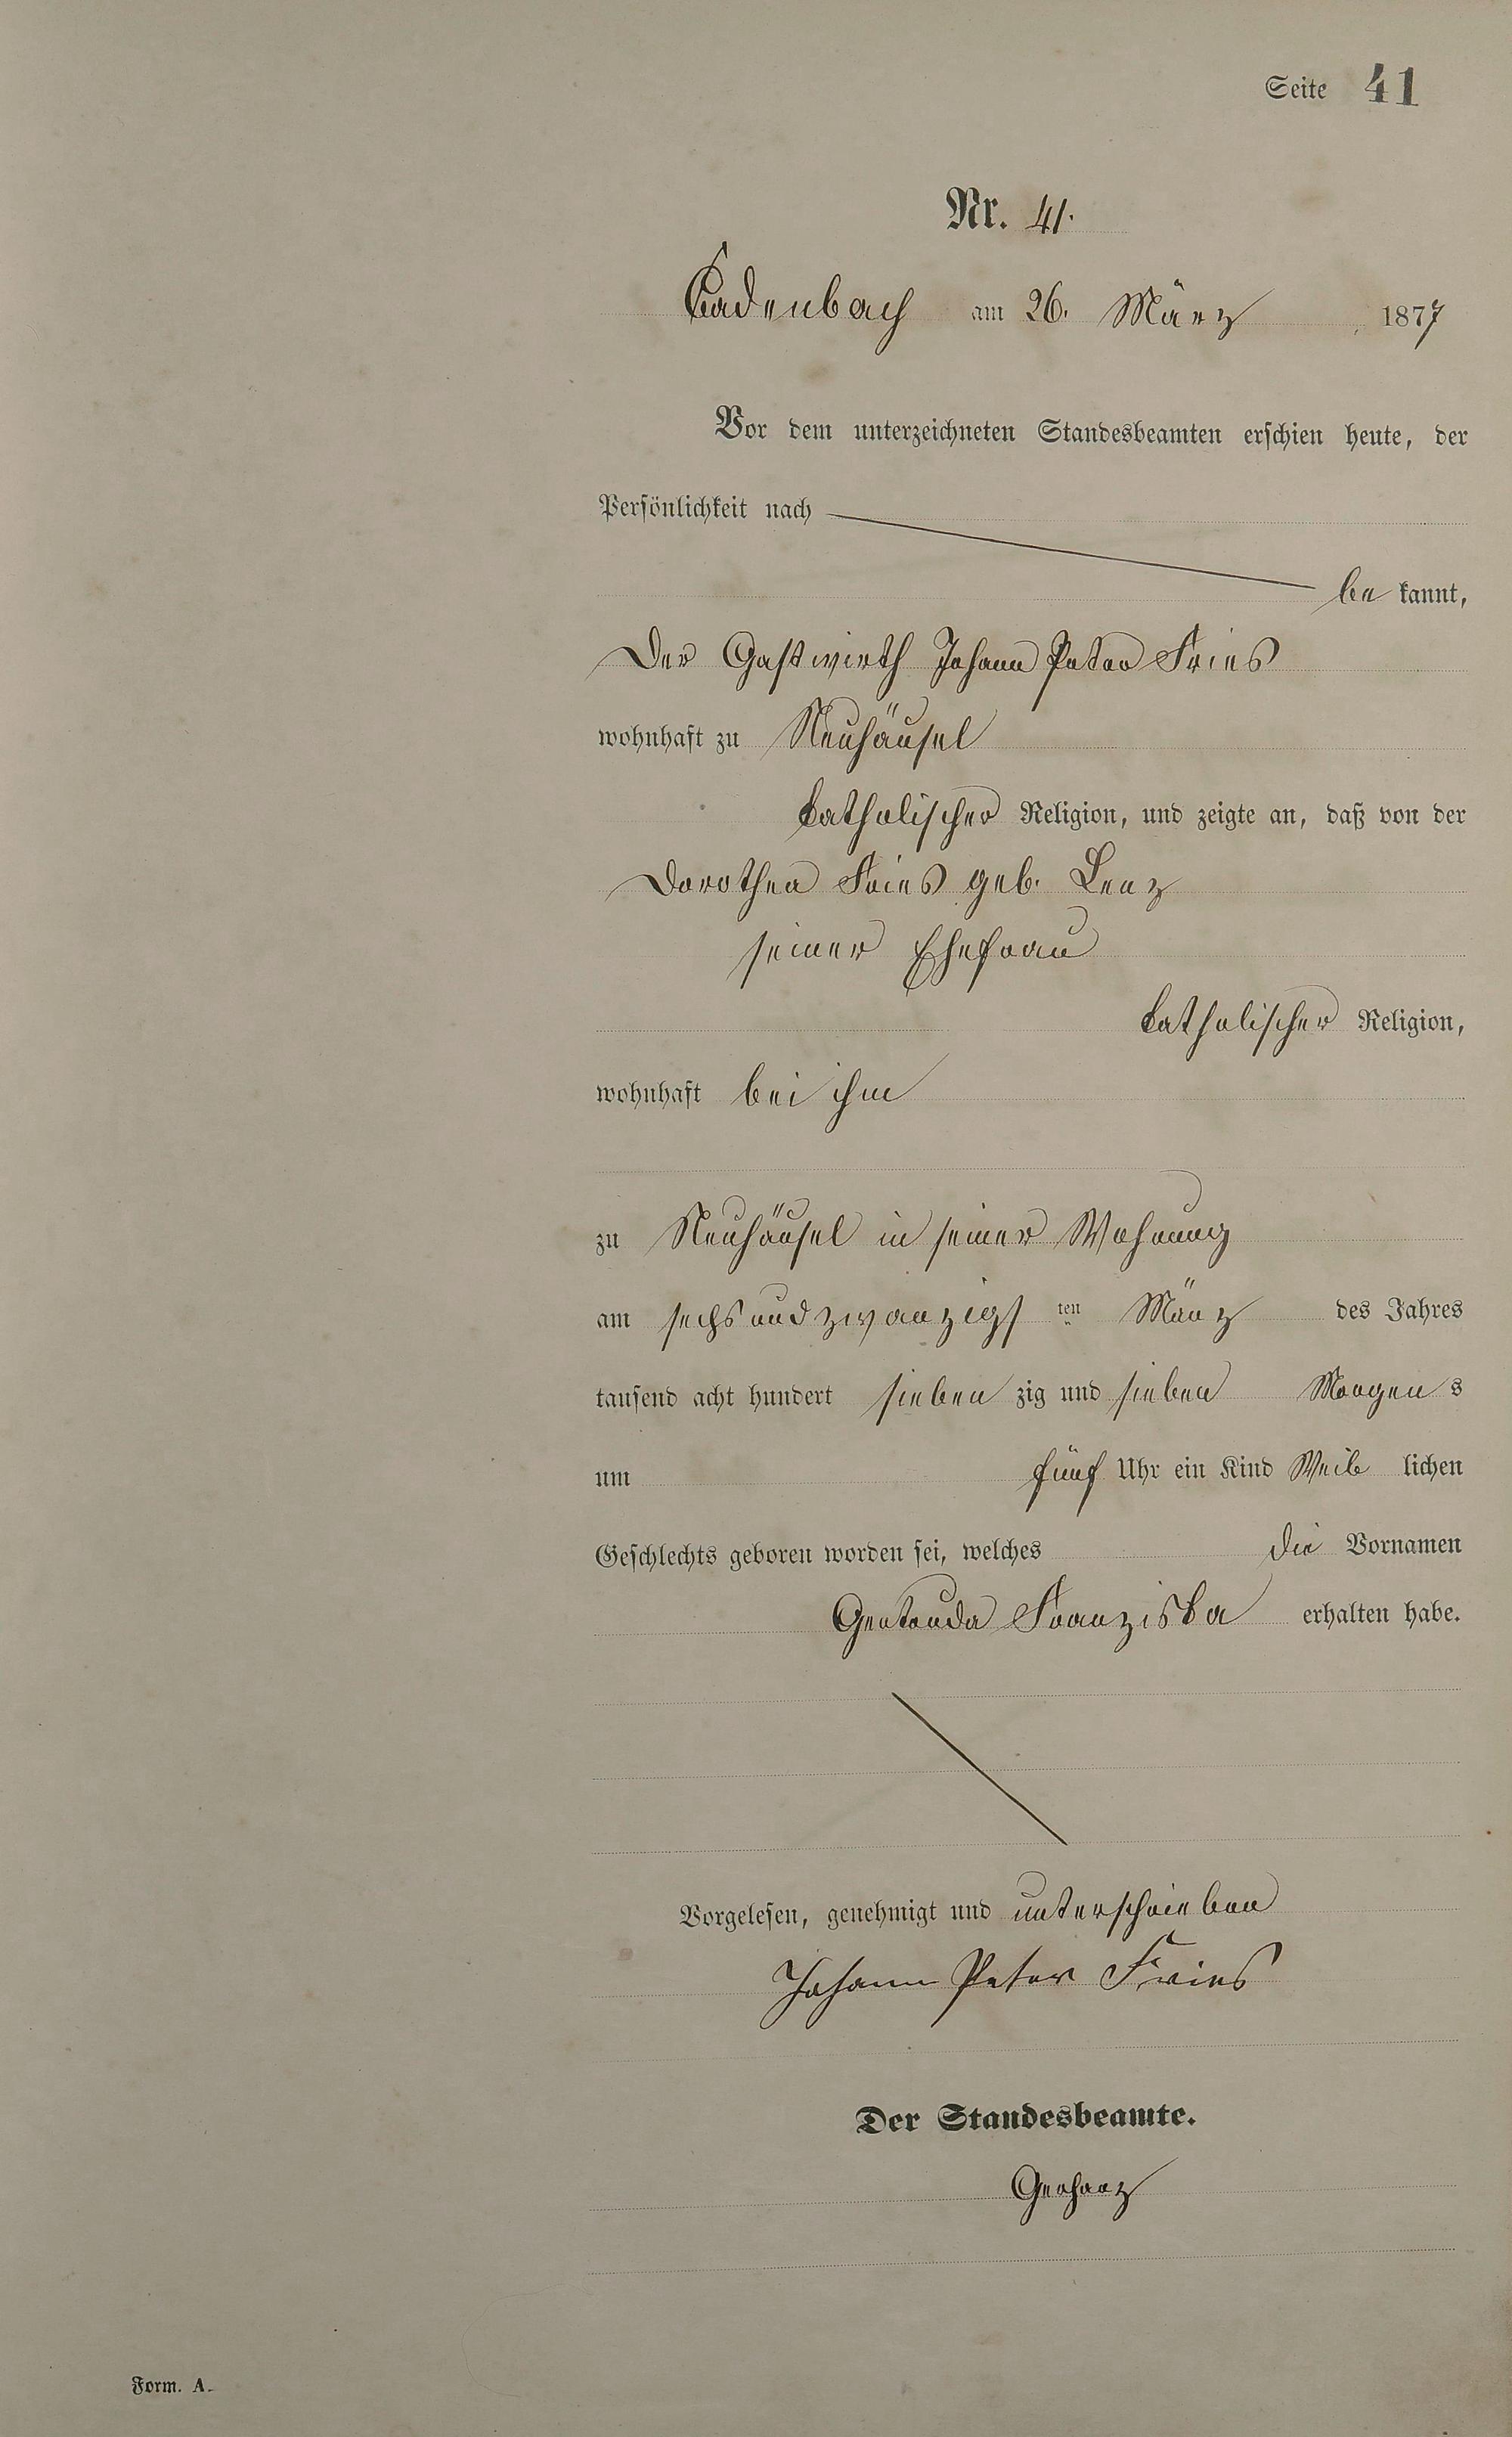 Seite 41
Nr. 41.
Cadenbach am 26. März 1877
Vor dem unterzeichneten Standesbeamten erschien heute, der
Persönlichkeit nach
be kannt,
Der Gastwirth Johann Peter Fries
wohnhaft zu Neuhäusel
katholischer Religion, und zeigte an, daß von der
Dorothea Fries geb. Lenz
seiner Ehefrau
katholischer Religion,
wohnhaft bei ihm
zu Neuhäusel in seiner Wohnung
am sechsundzwanzigs ten März des Jahres
tausend acht hundert sieben zig und sieben Morgen s
um fünf Uhr ein Kind Weib lichen
Geschlechts geboren worden sei, welches die Vornamen
Gertruda Franziska erhalten habe.
Vorgelesen, genehmigt und unterschrieben
Johann Peter Fries
Der Standesbeamte.
Gerharz
Form. A.